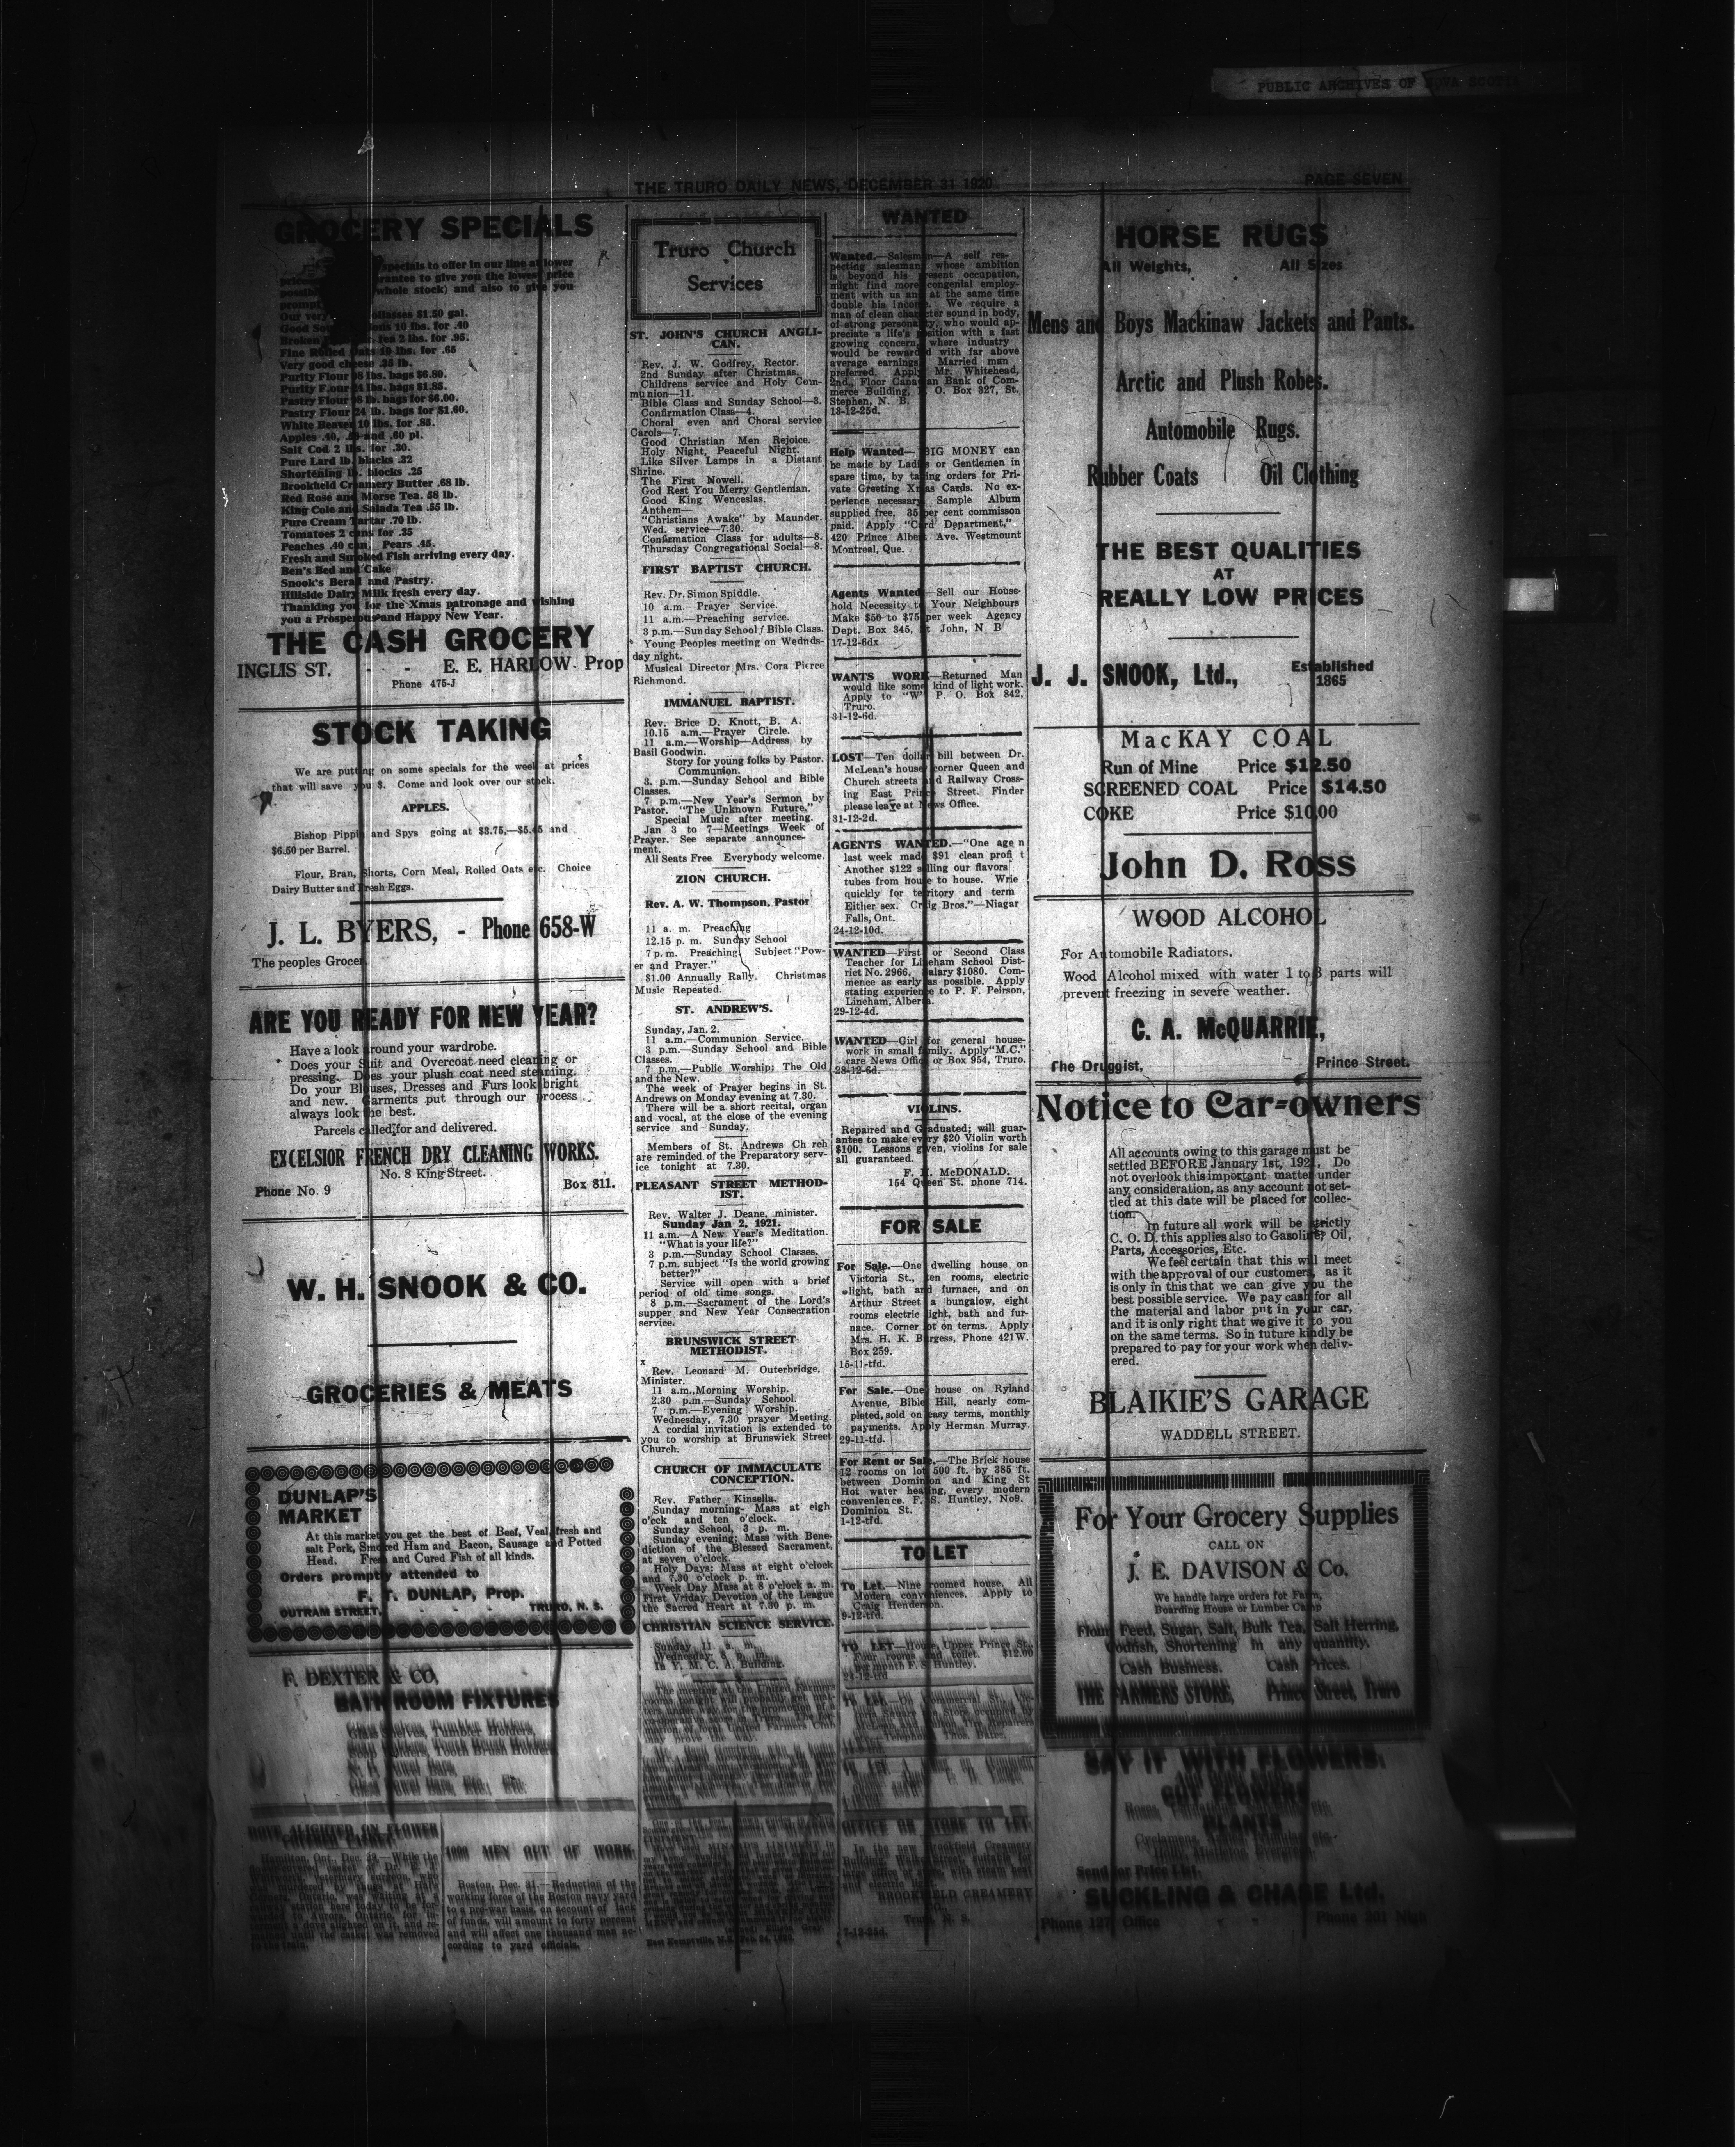 PUBLIC ARCHIVES OF NOVA SCOTIA
THE TRURO DAILY NEWS, DECEMBER 31 1920
PAGE SEVEN
GROCERY SPECIALS
specials to offer in our line at lower
rantee to give you the lowest price
whole stock) and also to give you
Our very ollasses $1.50 gal.
10 lbs. for .40
Broken tea 2 lbs. for .95.
Fine Rolled Oats 10 lbs. for .65
Very good cheese .35 lb.
Purity Flour 98 lbs. bags $6.80.
Purity Flour 24 lbs. bags $1.85.
Pastry Flour 98 lb. bags for $6.00.
Pastry Flour 24 lb. bags for $1.60.
White Beaver 10 lbs. for .85.
Apples .40, .50 and .60 pl.
Salt Cod 2 lbs. for .30.
Pure Lard lb. blacks .32
Shortening lb. blocks .25
Brookfield Creamery Butter .68 lb.
Red Rose and Morse Tea. 58 lb.
King Cole and Salada Tea .55 lb.
Pure Cream Tartar .70 lb.
Tomatoes 2 cans for .35
Peaches .40 can, Pears .45.
Fresh and Smoked Fish arriving every day.
Ben's Bed and Cake
Snook's Berad and Pastry.
Hillside Dairy Milk fresh every day.
Thanking you for the Xmas patronage and wishing
you a Prosperous and Happy New Year.
THE CASH GROCERY
INGLIS ST. - - E. E. HARLOW Prop
Phone 475-J
STOCK TAKING
We are putting on some specials for the week at prices
that will save you $. Come and look over our stock.
APPLES.
Bishop Pippin and Spys going at $3.75,—$5.45 and
$6.50 per Barrel.
Flour, Bran, Shorts, Corn Meal, Rolled Oats etc. Choice
Dairy Butter and Fresh Eggs.
J. L. BYERS, - Phone 658-W
The peoples Grocer.
ARE YOU READY FOR NEW YEAR?
Have a look around your wardrobe.
Does your Suit and Overcoat need cleaning or
pressing. Does your plush coat need steaming.
Do your Blouses, Dresses and Furs look bright
and new. Garments put through our process
always look the best.
Parcels called for and delivered.
EXCELSIOR FRENCH DRY CLEANING WORKS.
No. 8 King Street.
Phone No. 9 Box 811.
W. H. SNOOK & CO.
GROCERIES & MEATS
DUNLAP'S
MARKET
At this market you get the best of Beef, Veal, fresh and
salt Pork, Smoked Ham and Bacon, Sausage and Potted
Head. Fresh and Cured Fish of all kinds.
Orders promptly attended to
F. T. DUNLAP, Prop.
OUTRAM STREET, - - TRURO, N. S.
F. DEXTER & CO,
BATH ROOM FIXTURES
Glass Shelves, Tumbler Holders,
Soap Holders, Tooth Brush Holders
DOVE ALIGHTED ON FLOWER
Hamilton, Ont., Dec. 29—While the
1000 MEN OUT OF WORK.
Boston, Dec. 31—Reduction of the
working force of the Boston navy yard
to a pre-war basis, on account of lack
of funds, will amount to forty percent
and will affect one thousand men ac-
cording to yard officials.
Truro Church
Services
ST. JOHN'S CHURCH ANGLI-
CAN.
Rev. J. W. Godfrey, Rector.
2nd Sunday after Christmas.
Childrens service and Holy Com-
munion—11.
Bible Class and Sunday School—3.
Confirmation Class—4.
Choral even and Choral service
Carols—7.
Good Christian Men Rejoice.
Holy Night, Peaceful Night.
Like Silver Lamps in a Distant
Shrine.
The First Nowell.
God Rest You Merry Gentleman.
Good King Wenceslas.
Anthem—
"Christians Awake" by Maunder.
Wed. service—7.30.
Confirmation Class for adults—8.
Thursday Congregational Social—8.
FIRST BAPTIST CHURCH.
Rev. Dr. Simon Spiddle.
10 a.m.—Prayer Service.
11 a.m.—Preaching service.
3 p.m.—Sunday School / Bible Class.
Young Peoples meeting on Wednds-
day night.
Musical Director Mrs. Cora Pierce
Richmond.
IMMANUEL BAPTIST.
Rev. Brice D. Knott, B. A.
10.15 a.m.—Prayer Circle.
11 a.m.—Worship—Address by
Basil Goodwin.
Story for young folks by Pastor.
Communion.
3. p.m.—Sunday School and Bible
Classes.
7 p.m.—New Year's Sermon by
Pastor. "The Unknown Future."
Special Music after meeting.
Jan 3 to 7—Meetings Week of
Prayer. See separate announce-
ment.
All Seats Free Everybody welcome.
ZION CHURCH.
Rev. A. W. Thompson, Pastor
11 a. m. Preaching
12.15 p. m. Sunday School
7 p. m. Preaching Subject "Pow-
er and Prayer."
$1.00 Annually Rally. Christmas
Music Repeated.
ST. ANDREW'S.
Sunday, Jan. 2.
11 a.m.—Communion Service.
3 p.m.—Sunday School and Bible
Classes.
7 p.m.—Public Worship; The Old
and the New.
The week of Prayer begins in St.
Andrews on Monday evening at 7.30.
There will be a short recital, organ
and vocal, at the close of the evening
service and Sunday.
Members of St. Andrews Ch rch
are reminded of the Preparatory serv-
ice tonight at 7.30.
PLEASANT STREET METHOD-
IST.
Rev. Walter J. Deane, minister.
Sunday Jan 2, 1921.
11 a.m.—A New Year's Meditation.
"What is your life?"
3 p.m.—Sunday School Classes.
7 p.m. subject "Is the world growing
better?"
Service will open with a brief
period of old time songs.
8 p.m.—Sacrament of the Lord's
supper and New Year Consecration
service.
BRUNSWICK STREET
METHODIST.
x
Rev. Leonard M. Outerbridge,
Minister.
11 a.m., Morning Worship.
2.30 p.m.—Sunday School.
7 p.m.—Evening Worship.
Wednesday, 7.30 prayer Meeting.
A cordial invitation is extended to
you to worship at Brunswick Street
Church.
CHURCH OF IMMACULATE
CONCEPTION.
Rev. Father Kinsella.
Sunday morning- Mass at eigh
o'cck and ten o'clock.
Sunday School, 3 p. m.
Sunday evening; Mass with Bene-
diction of the Blessed Sacrament,
at seven o'clock.
Holy Days: Mass at eight o'clock
and 7.30 o'clock p. m.
Week Day Mass at 8 p'clock a. m.
First Vriday Devotion of the League
the Sacred Heart at 7.30 p. m.
CHRISTIAN SCIENCE SERVICE.
Sunday 11 a. m.
Wednesday 8 p. m.
In Y. M. C. A. Building.
The meeting of the United Farmers
WANTED
Wanted.—Salesman—A self res-
pecting salesman whose ambition
is beyond his present occupation,
might find more congenial employ-
ment with us and at the same time
double his income. We require a
man of clean character sound in body,
of strong personality, who would ap-
preciate a life's position with a fast
growing concern, where industry
would be rewarded with far above
average earnings. Married man
preferred. Apply Mr. Whitehead,
2nd., Floor Canadian Bank of Com-
merce Building, P. O. Box 327, St.
Stephen, N. B.
18-12-25d.
Help Wanted— BIG MONEY can
be made by Ladies or Gentlemen in
spare time, by taking orders for Pri-
vate Greeting Xmas Cards. No ex-
perience necessary Sample Album
supplied free, 35 per cent commisson
paid. Apply "Card Department,"
420 Prince Albert Ave. Westmount
Montreal, Que.
Agents Wanted—Sell our House-
hold Necessity to Your Neighbours
Make $50 to $75 per week Agency
Dept. Box 345, St John, N B
17-12-6dx
WANTS WORK—Returned Man
would like some kind of light work.
Apply to "W" P. O. Box 842,
Truro.
31-12-6d.
LOST—Ten dollar bill between Dr.
McLean's house corner Queen and
Church streets and Railway Cross-
ing East Prince Street. Finder
please leave at News Office.
31-12-2d.
AGENTS WANTED.—"One age n
last week made $91 clean profi t
Another $122 selling our flavors
tubes from house to house. Wrie
quickly for territory and term
Either sex. Craig Bros."—Niagar
Falls, Ont.
24-12-10d.
WANTED—First or Second Class
Teacher for Lineham School Dist-
rict No. 2966, Salary $1080. Com-
mence as early as possible. Apply
stating experience to P. F. Peirson,
Lineham, Alberta.
29-12-4d.
WANTED—Girl for general house-
work in small family. Apply "M.C."
care News Office or Box 954, Truro.
28-12-6d.
VIOLINS.
Repaired and Graduated; will guar-
antee to make every $20 Violin worth
$100. Lessons given, violins for sale
all guaranteed.
F. H. McDONALD.
154 Queen St. phone 714.
FOR SALE
For Sale.—One dwelling house on
Victoria St., ten rooms, electric
light, bath and furnace, and on
Arthur Street a bungalow, eight
rooms electric light, bath and fur-
nace. Corner lot on terms. Apply
Mrs. H. K. Burgess, Phone 421W.
Box 259.
15-11-tfd.
For Sale.—One house on Ryland
Avenue, Bible Hill, nearly com-
pleted, sold on easy terms, monthly
payments. Apply Herman Murray.
29-11-tfd.
For Rent or Sale.—The Brick house
12 rooms on lot 500 ft. by 385 ft.
between Dominion and King St
Hot water heating, every modern
convenience. F. S. Huntley, No9.
Dominion St.
1-12-tfd.
TO LET
To Let.—Nine roomed house. All
Modern conveniences. Apply to
Craig Henderson.
9-12-tfd.
TO LET—House, Upper Prince St.
Four rooms and toilet. $12.00
per month F. S. Huntley.
OFFICE OR STORE TO LET.
In the new Brookfield Creamery
BROOKFIELD CREAMERY
Truro, N. S.
HORSE RUGS
All Weights, All Sizes
Mens and Boys Mackinaw Jackets and Pants.
Arctic and Plush Robes.
Automobile Rugs.
Rubber Coats Oil Clothing
THE BEST QUALITIES
AT
REALLY LOW PRICES
J. J. SNOOK, Ltd., Established
1865
MacKAY COAL
Run of Mine Price $12.50
SCREENED COAL Price $14.50
COKE Price $10.00
John D. Ross
WOOD ALCOHOL
For Automobile Radiators.
Wood Alcohol mixed with water 1 to 3 parts will
prevent freezing in severe weather.
C. A. McQUARRIE,
The Druggist, Prince Street.
Notice to Car-owners
All accounts owing to this garage must be
settled BEFORE January 1st, 1921, Do
not overlook this important matter under
any consideration, as any account not set-
tled at this date will be placed for collec-
tion.
In future all work will be strictly
C. O. D. this applies also to Gasoline, Oil,
Parts, Accessories, Etc.
We feel certain that this will meet
with the approval of our customers, as it
is only in this that we can give you the
best possible service. We pay cash for all
the material and labor put in your car,
and it is only right that we give it to you
on the same terms. So in tuture kindly be
prepared to pay for your work when deliv-
ered.
BLAIKIE'S GARAGE
WADDELL STREET.
For Your Grocery Supplies
CALL ON
J. E. DAVISON & Co.
We handle large orders for Farm,
Boarding House or Lumber Camp
Flour, Feed, Sugar, Salt, Bulk Tea, Salt Herring,
Codfish, Shortening in any quantity.
Cash Business. Cash Prices.
THE FARMERS STORE, Prince Street, Truro
SAY IT WITH FLOWERS.
CUT FLOWERS
PLANTS
Send for Price List.
SUCKLING & CHASE Ltd.
Phone 127 Office